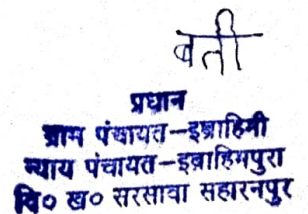 बती
प्रधान
ग्राम पंचायत–इब्राहिमी
न्याय पंचायत–इब्राहिमपुरा
वि० ख० सरसावा सहारनपुर